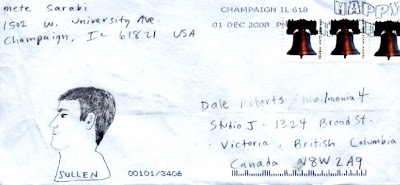 mete sarabi
1502 W. University Ave.
Champaign, IL 61821 USA
CHAMPAIGN IL 618
01 DEC 2008
HAPPY
Dale Roberts / mailmania 4
Studio J - 1324 Broad St.
Victoria, British Columbia
Canada V8W 2A9
SULLEN
00101/3408